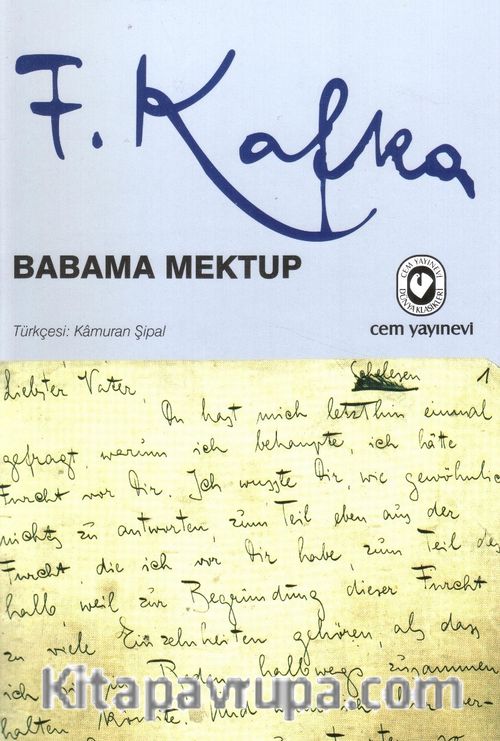 F. Kafka
BABAMA MEKTUP
CEM YAYINEVİ
DÜNYA KLASİKLERİ
Türkçesi: Kâmuran Şipal
cem yayınevi
Schelesen
1
Liebster Vater,
Du hast mich letzthin einmal
gefragt, warum ich behaupte, ich hätte
Furcht vor Dir. Ich wusste Dir, wie gewöhnlich
nichts zu antworten, zum Teil eben aus der
Furcht, die ich vor Dir habe, zum Teil des
halb, weil zur Begründung dieser Furcht
zu viele Einzelnheiten gehören, als dass
ich sie im Reden halbwegs zusammen
halten könnte. Und wenn ich hier
Kitapavrupa.com